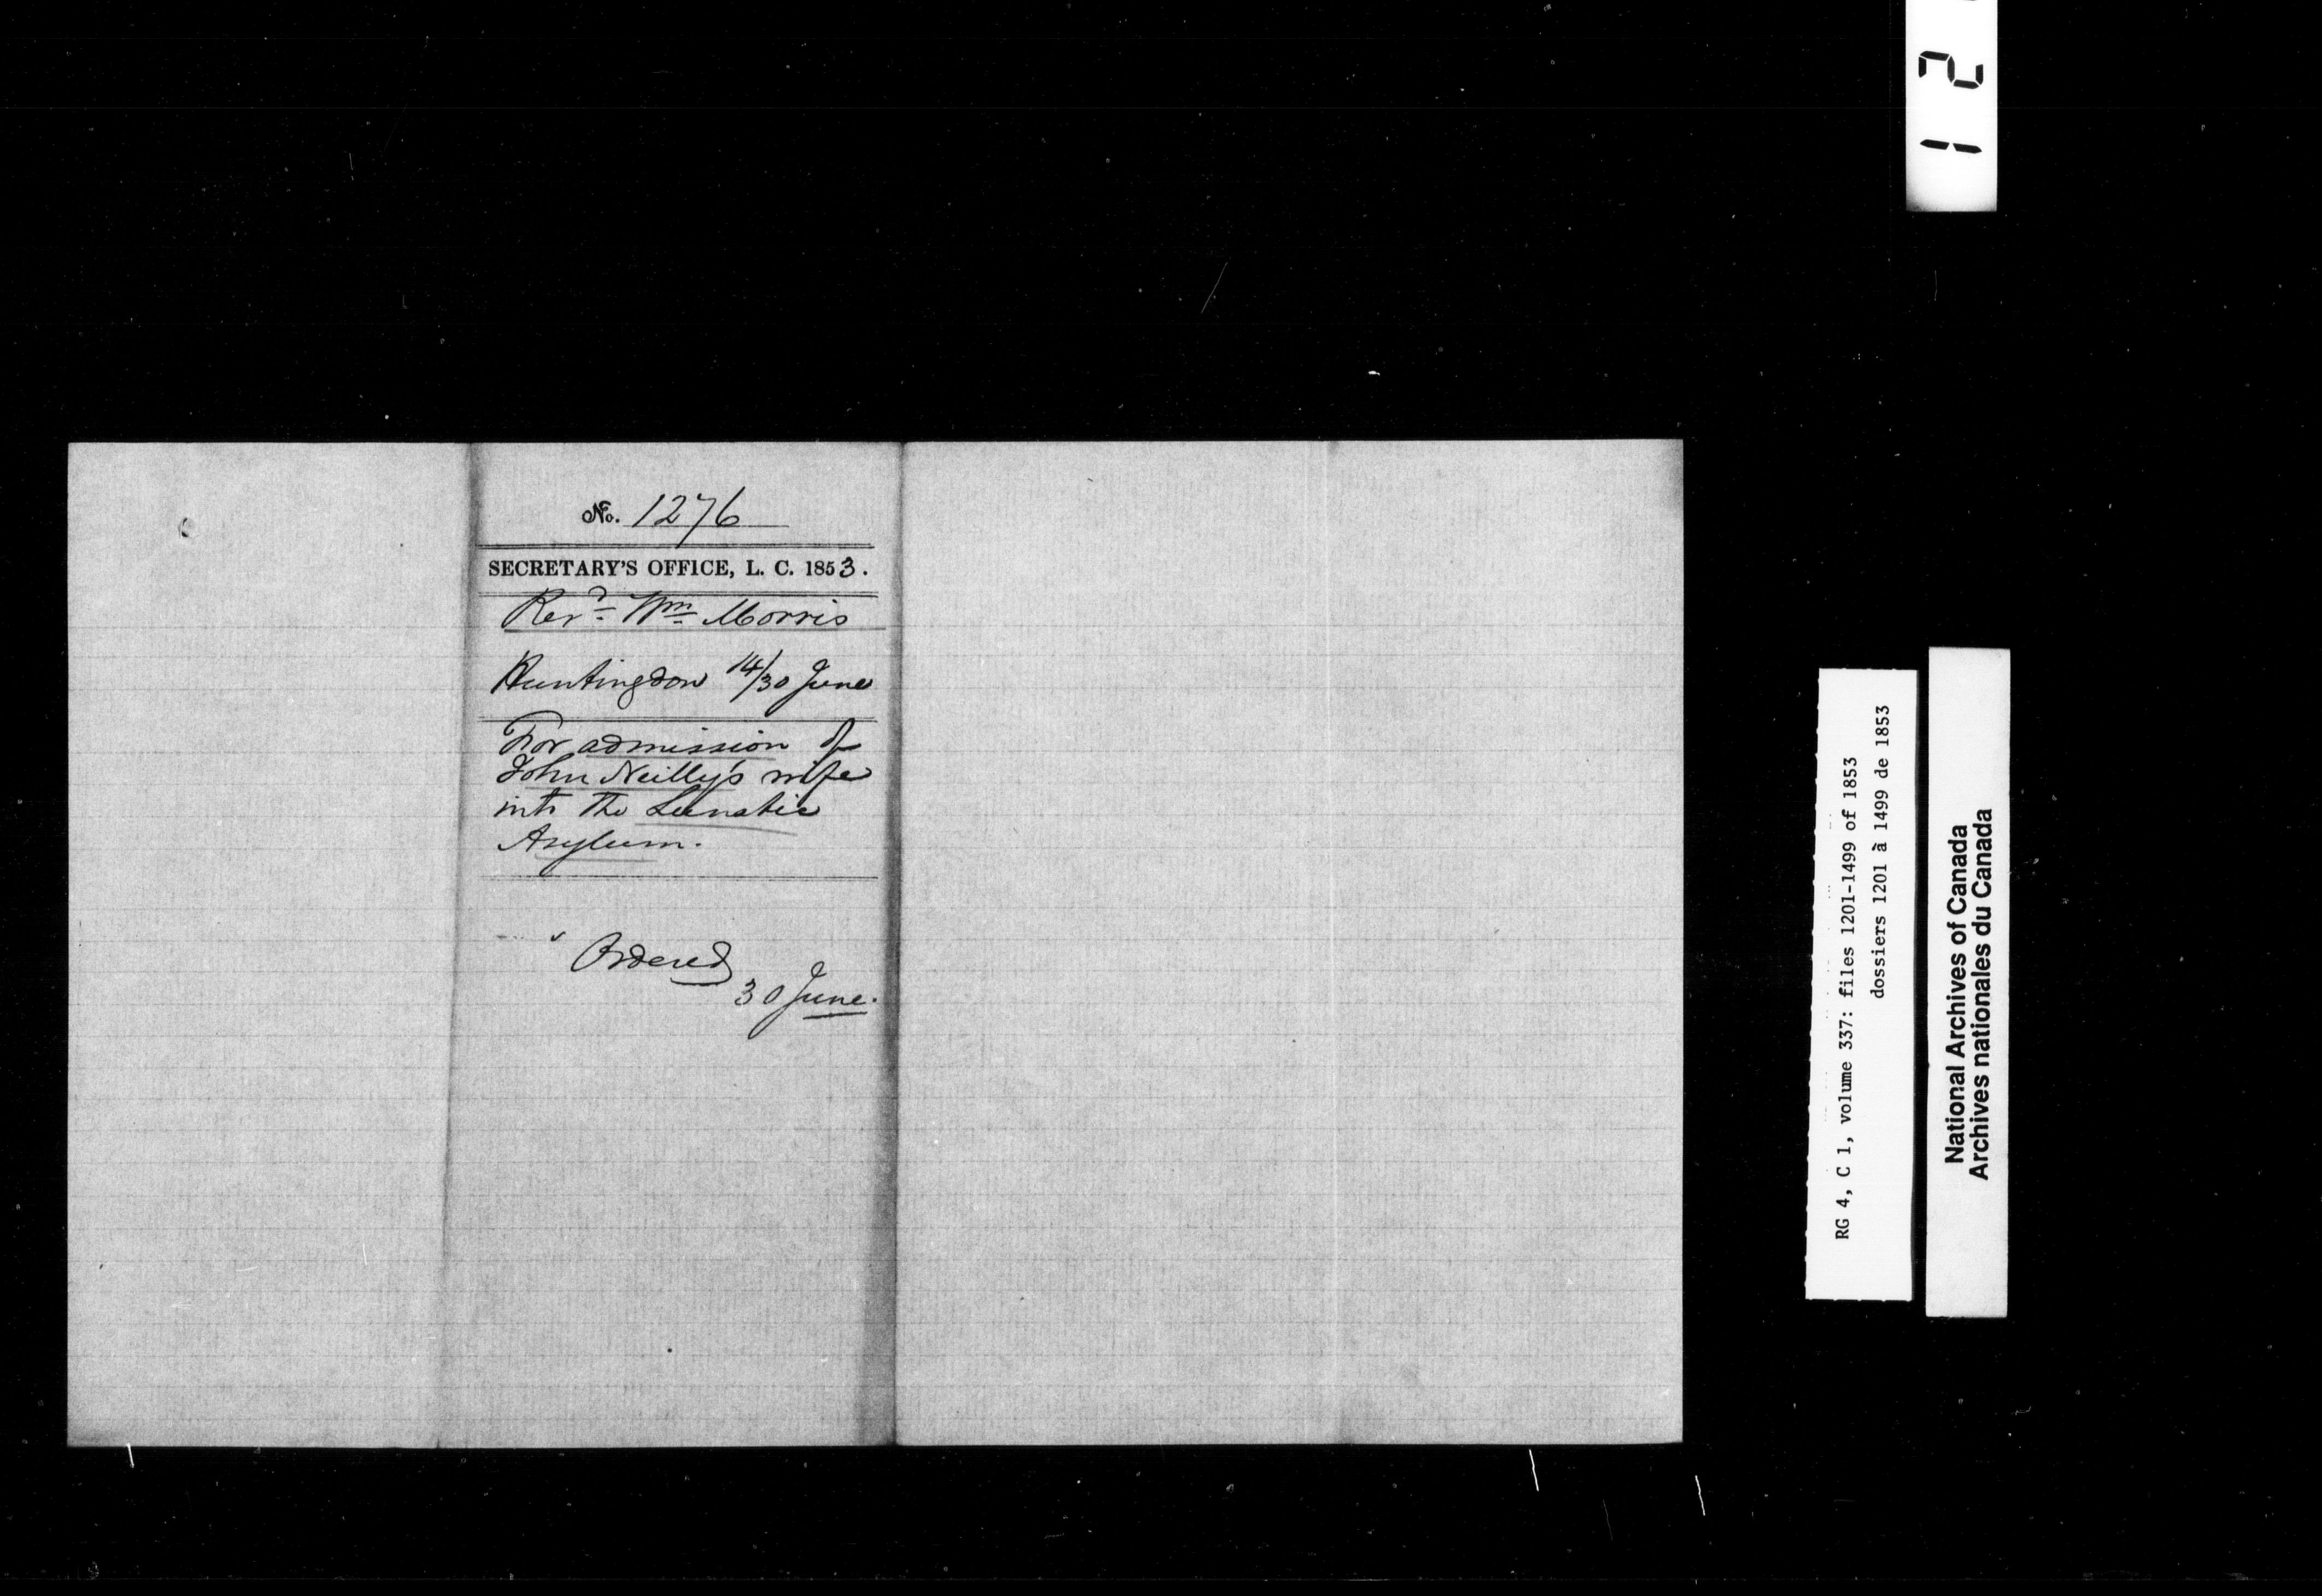 No. 1276
SECRETARY'S OFFICE, L. C. 1853.
Revd Wm Morris
Huntingdon 14/30 June
For admission of
John Neilly's wife
into the Lunatic
Asylum.
Ordered
30 June.
RG 4, C 1, volume 337: files 1201-1499 of 1853
dossiers 1201 à 1499 de 1853
National Archives of Canada
Archives nationales du Canada
12